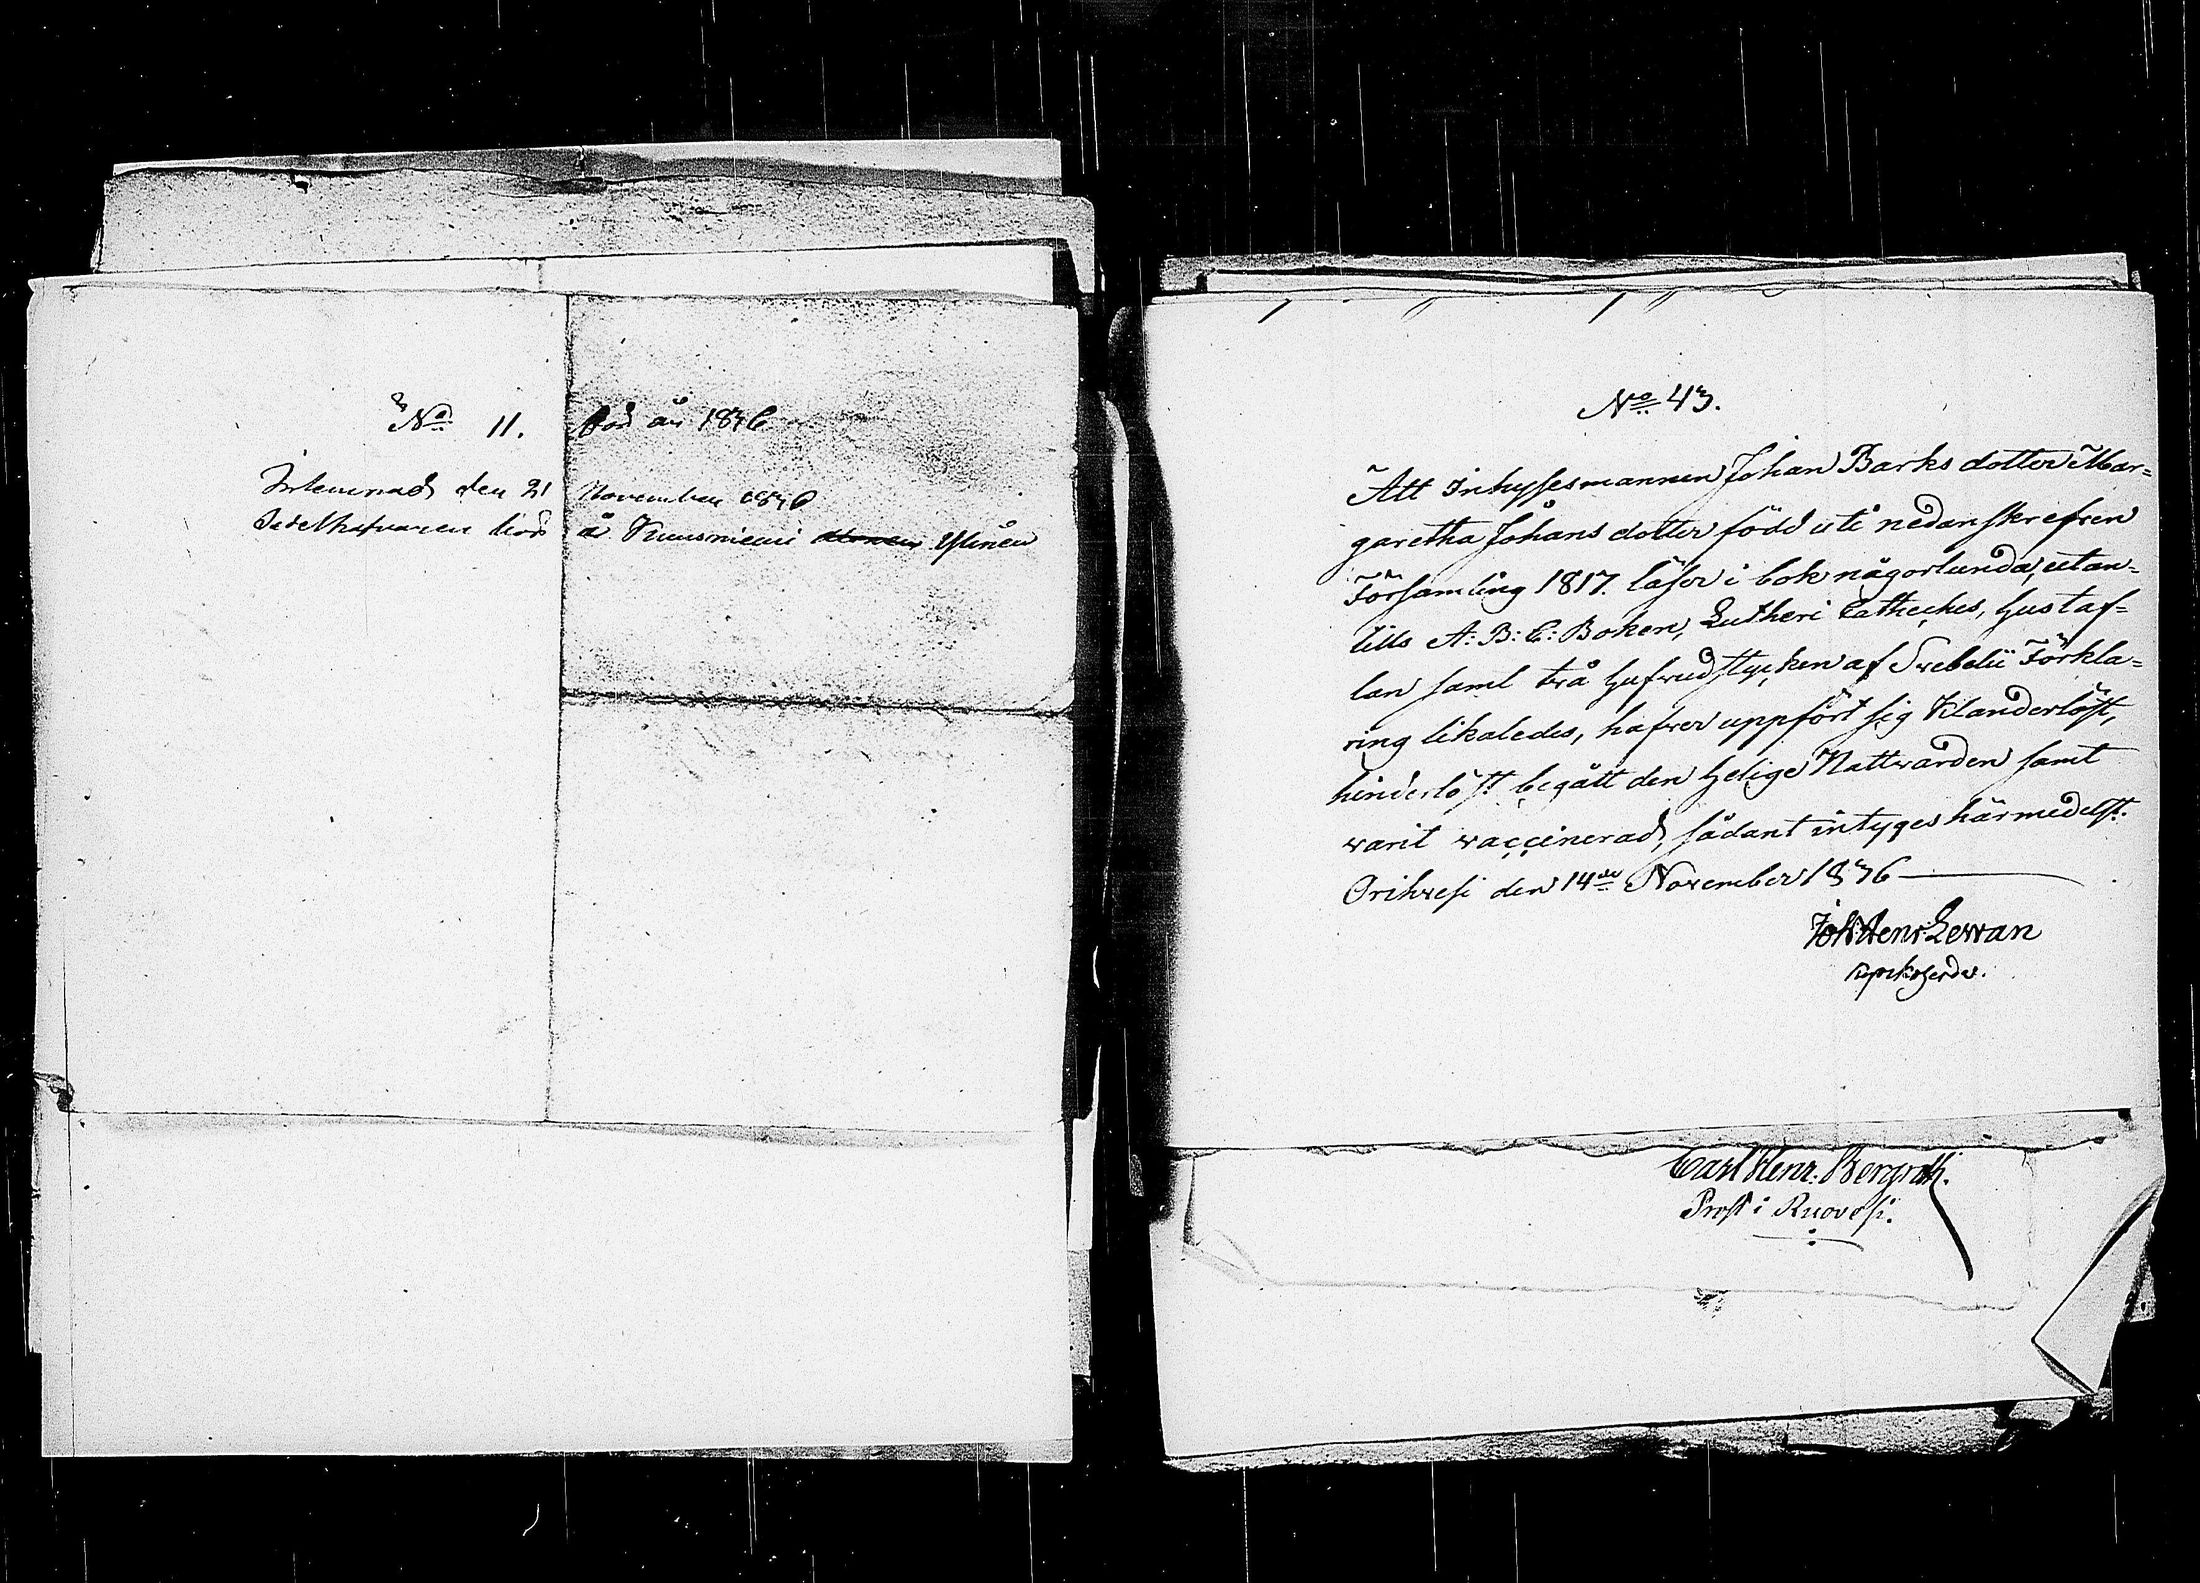 No 11. för år 1836
Inlemnad den 21 November 1836
Innehafvaren bor å Kuusniemi Ylinen
No 43.
Att Inhyssesmannen Johan Barks dotter Mar-
garetha Johans dotter född uti nedanskrefven
Församling 1817. läser i bok någorlunda, utan-
tills A: B: C: Boken, Lutheri Catheches, Hustaf-
lan samt två Hufvudstycken af Svebelii Förkla-
ring likaledes, hafver uppfört sig Klanderlöst,
hinderlöst begått den Helige Nattvarden samt
varit vaccinerad, sådant intyges härmedelst.
Orihvesi den 14de November 1836
Joh Henr Levan
Carl Henr: Bengrath.
Prost i Ruovesi.